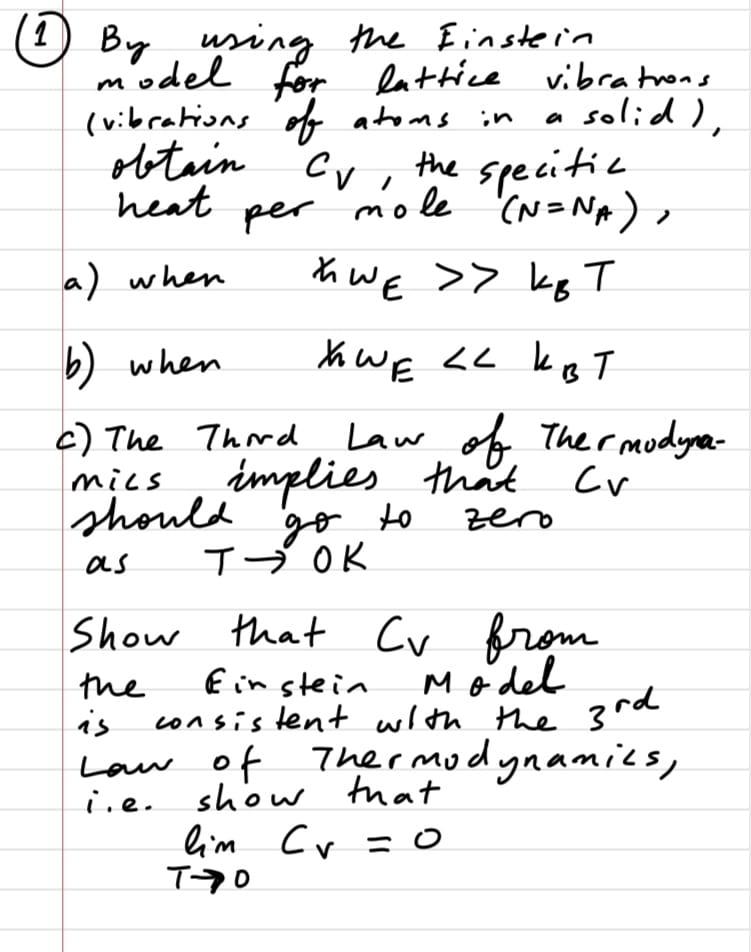 (1) By using the Einstein
model for lattice vibrations
(vibrations of atoms in a solid),
obtain Cv, the specific
heat per mole (N=NA),
a) when ħωE >> kBT
b) when ħωE << kBT
c) The Third Law of Thermodyna-
mics implies that Cv
should go to zero
as T→0K
Show that Cv from
the Einstein Model
is consistent with the 3rd
Law of Thermodynamics,
i.e. show that
lim Cv = 0
T→0